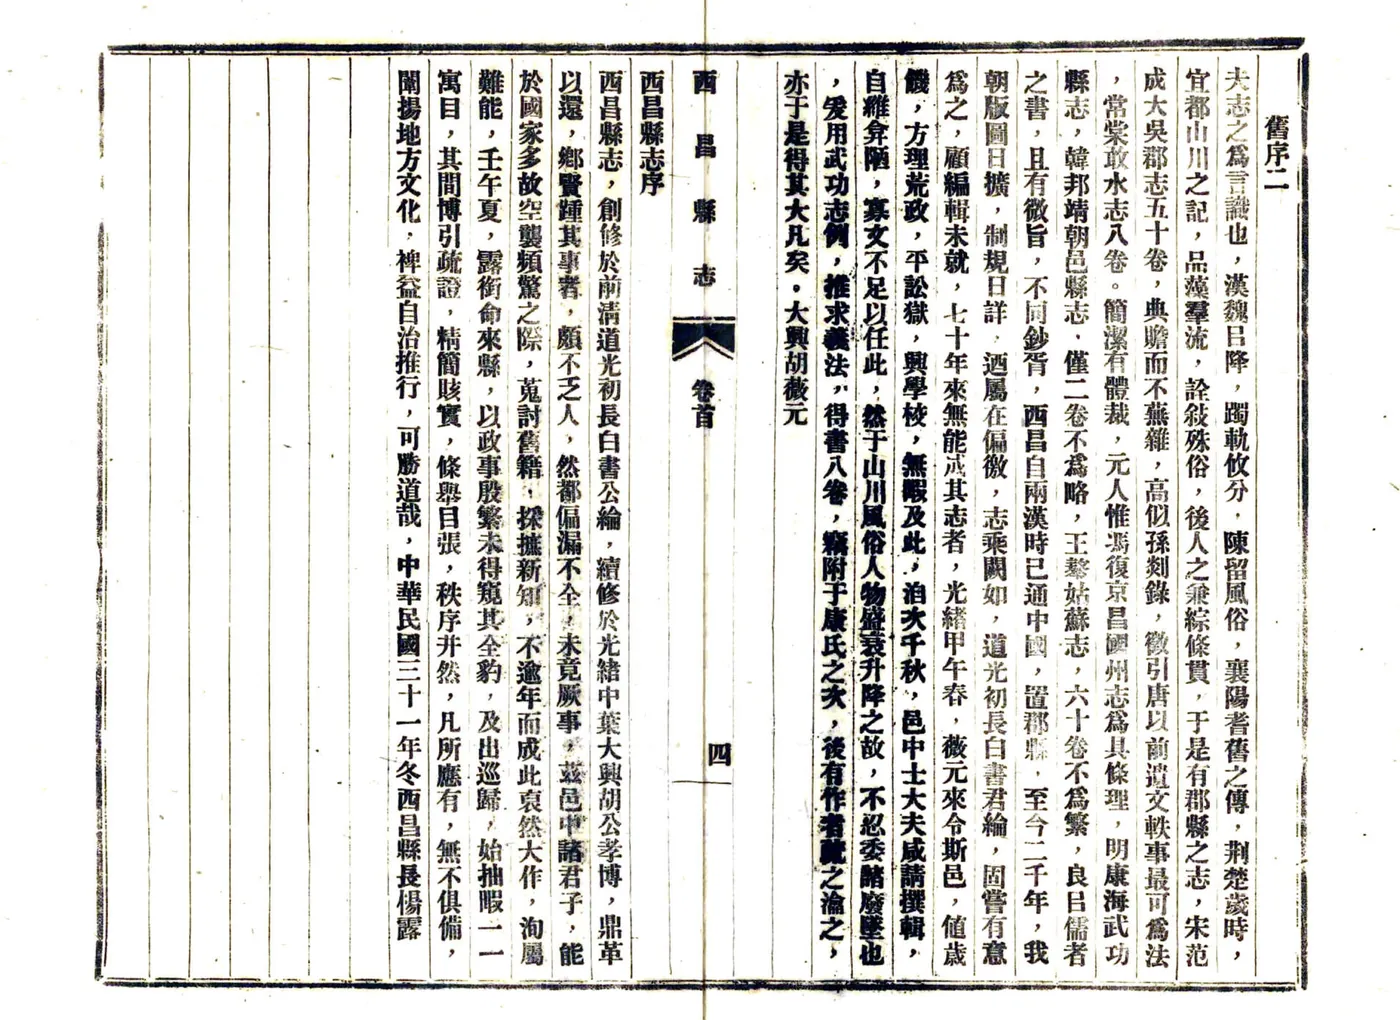 舊序二
夫志之爲言識也，漢魏㠯降，躅軌攸分，陳留風俗，襄陽耆舊之傳，荆楚歲時，
宜都山川之記，品藻羣流，詮敍殊俗，後人之兼綜條貫，于是有郡縣之志，宋范
成大吳郡志五十卷，典贍而不蕪雜，高似孫剡錄，徵引唐以前遺文軼事最可爲法
，常棠敢水志八卷。簡潔有體裁，元人惟馮復京昌國州志爲具條理，明康海武功
縣志，韓邦靖朝邑縣志，僅二卷不爲略，王鏊姑蘇志，六十卷不爲繁，良㠯儒者
之書，且有微旨，不同鈔胥，西昌自兩漢時已通中國，置郡縣，至今二千年，我
朝版圖日擴，制規日詳，迺屬在偏徼，志乘闕如，道光初長白書君綸，固嘗有意
爲之，顧編輯未就，七十年來無能成其志者，光緒甲午春，薇元來令斯邑，値歲
饑，方理荒政，平訟獄，興學校，無暇及此，洎次千秋，邑中士大夫咸請撰輯，
自維弇陋，寡文不足以任此，然于山川風俗人物盛衰升降之故，不忍委諸廢墜也
，爰用武功志例，推求義法，得書八卷，竊附于康氏之次，後有作者疏之瀹之，
亦于是得其大凡矣。大興胡薇元
西昌縣志　卷首　四
西昌縣志序
西昌縣志，創修於前清道光初長白書公綸，續修於光緒中葉大興胡公孝博，鼎革
以還，鄉賢踵其事者，頗不乏人，然都偏漏不全，未竟厥事，茲邑中諸君子，能
於國家多故空襲頻驚之際，蒐討舊籍，採摭新知，不逾年而成此裒然大作，洵屬
難能，壬午夏，露銜命來縣，以政事殷繁未得窺其全豹，及出巡歸，始抽暇一一
寓目，其間博引疏證，精簡賅實，條舉目張，秩序井然，凡所應有，無不俱備，
闡揚地方文化，裨益自治推行，可勝道哉，中華民國三十一年冬西昌縣長楊露